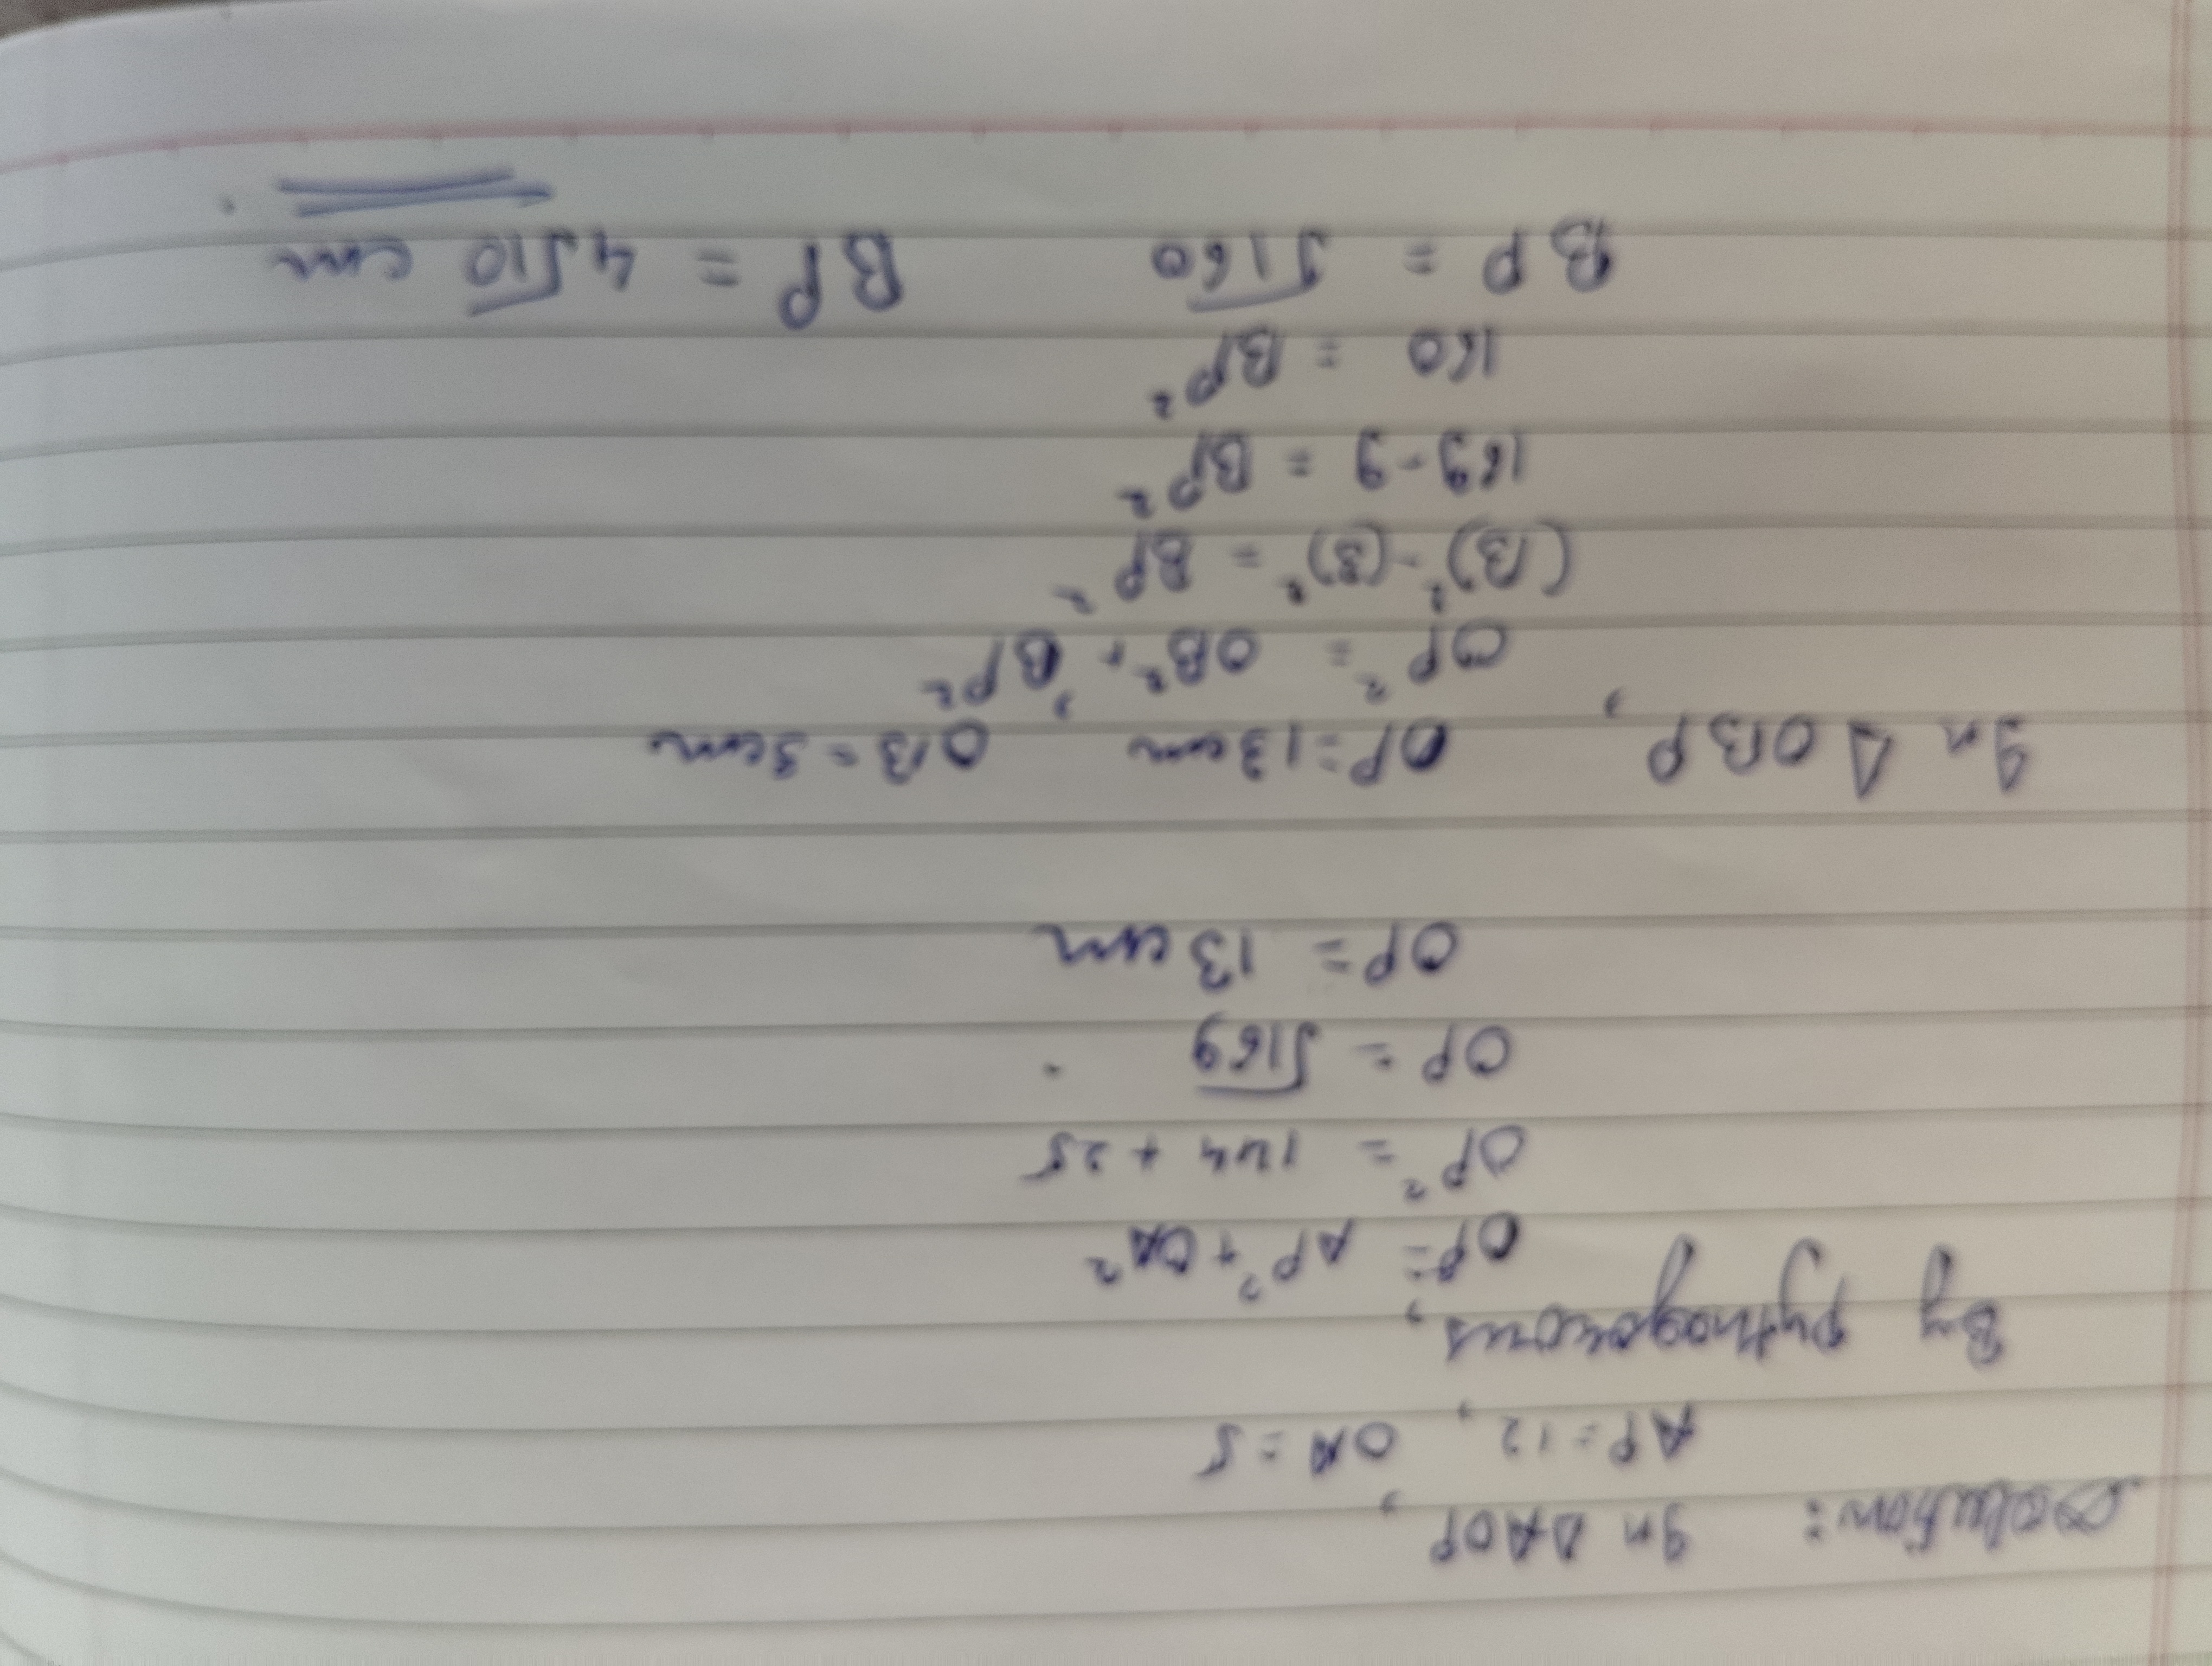 Solution: In ΔAOP,
AP = 12, OA = 5
By pythagorous,
OP² = AP² + OA²
OP² = 144 + 25
OP = √169
OP = 13 cm
In Δ OBP, OP = 13 cm, OB = 3 cm
OP² = OB² + BP²
(13)² - (3)² = BP²
169 - 9 = BP²
160 = BP²
BP = √160 BP = 4√10 cm